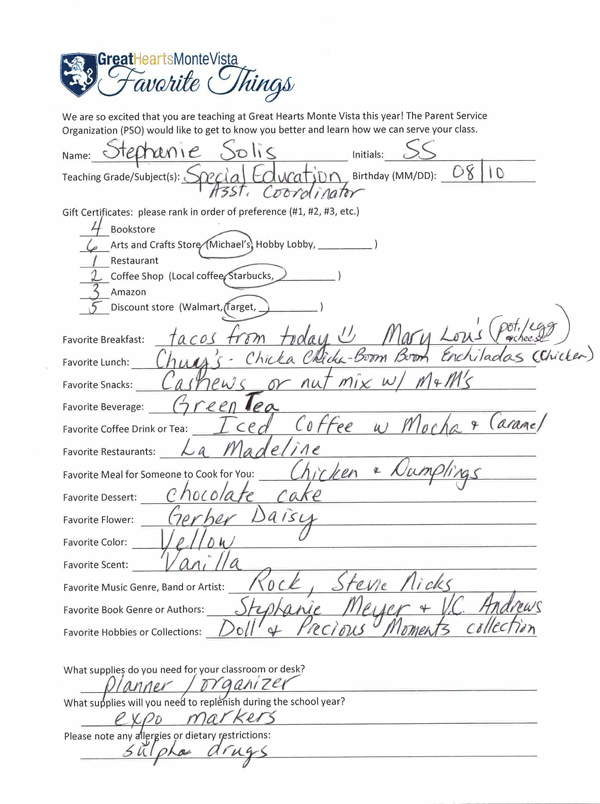 GreatHeartsMonteVista
Favorite Things
We are so excited that you are teaching at Great Hearts Monte Vista this year! The Parent Service
Organization (PSO) would like to get to know you better and learn how we can serve your class.
Name: Stephanie Solis Initials: SS
Teaching Grade/Subject(s): Special Education Birthday (MM/DD): 08/10
Asst. Coordinator
Gift Certificates: please rank in order of preference (#1, #2, #3, etc.)
4 Bookstore
6 Arts and Crafts Store (Michael's, Hobby Lobby, __________ )
1 Restaurant
2 Coffee Shop (Local coffee, Starbucks, __________ )
3 Amazon
5 Discount store (Walmart, Target, __________ )
Favorite Breakfast: tacos from today ☺ Mary Lou's (pot./egg & cheese)
Favorite Lunch: Chuy's - Chicka Chicka-Boom Boom Enchiladas (Chicken)
Favorite Snacks: Cashews or nut mix w/ M&M's
Favorite Beverage: Green Tea
Favorite Coffee Drink or Tea: Iced Coffee w Mocha & Caramel
Favorite Restaurants: La Madeline
Favorite Meal for Someone to Cook for You: Chicken & Dumplings
Favorite Dessert: chocolate cake
Favorite Flower: Gerber Daisy
Favorite Color: Yellow
Favorite Scent: Vanilla
Favorite Music Genre, Band or Artist: Rock, Stevie Nicks
Favorite Book Genre or Authors: Stephanie Meyer & V.C. Andrews
Favorite Hobbies or Collections: Doll & Precious Moments collection
What supplies do you need for your classroom or desk?
planner / organizer
What supplies will you need to replenish during the school year?
expo markers
Please note any allergies or dietary restrictions:
sulpha drugs